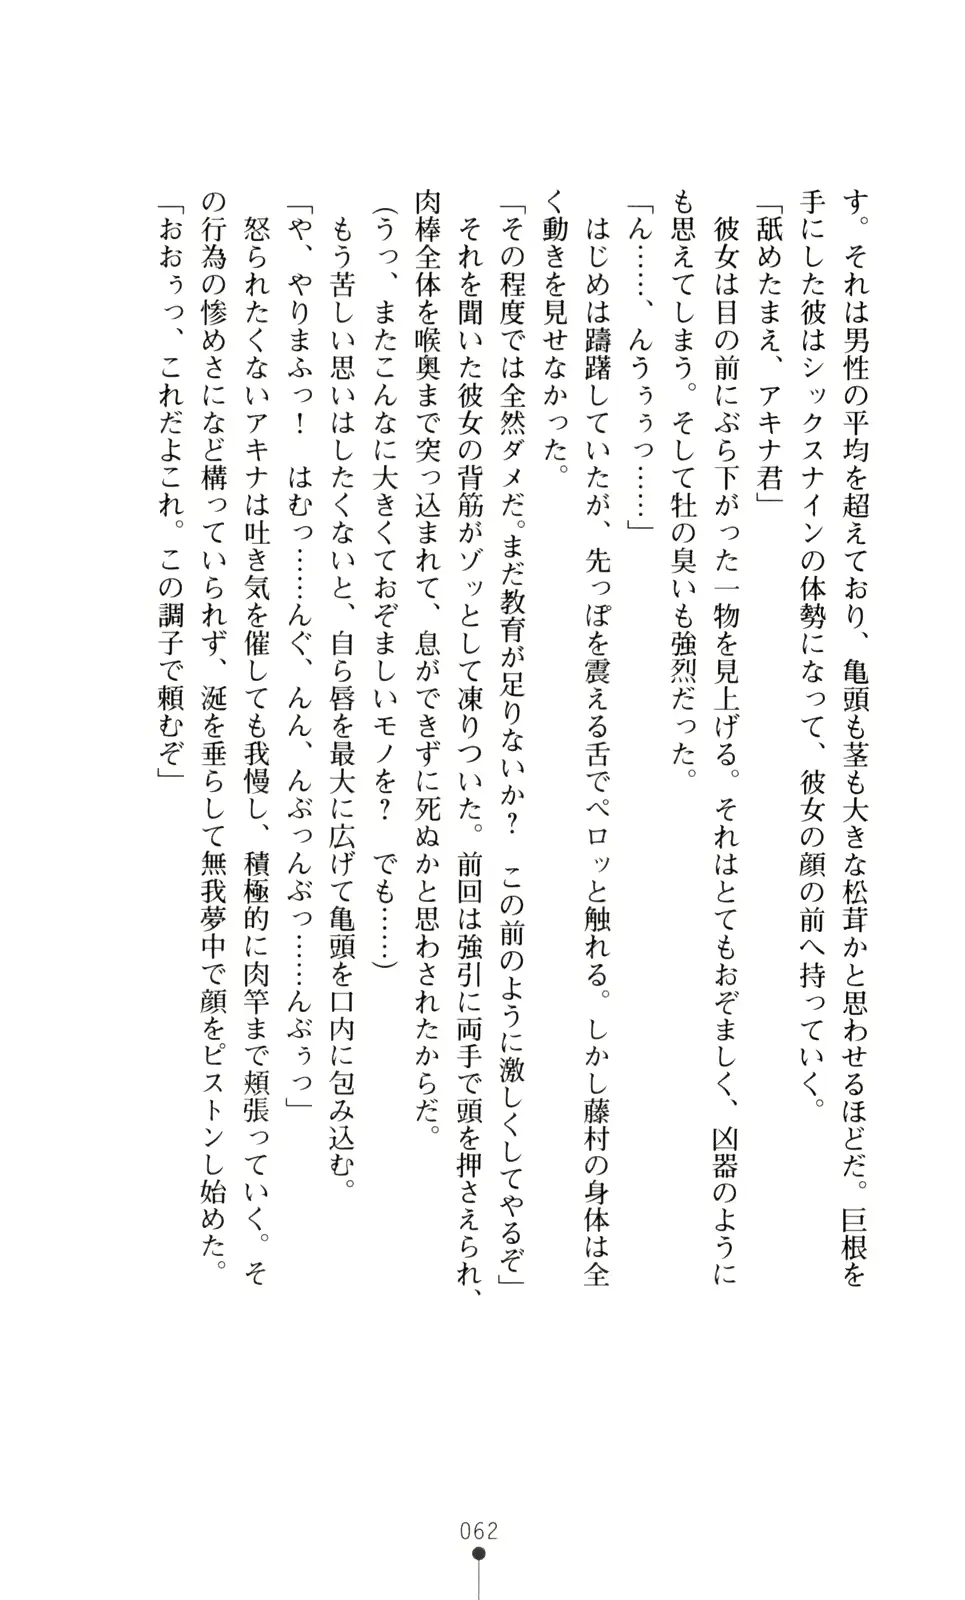 す。それは男性の平均を超えており、亀頭も茎も大きな松茸かと思わせるほどだ。巨根を
手にした彼はシックスナインの体勢になって、彼女の顔の前へ持っていく。
「舐めたまえ、アキナ君」
彼女は目の前にぶら下がった一物を見上げる。それはとてもおぞましく、凶器のように
も思えてしまう。そして牡の臭いも強烈だった。
「ん……、んうぅぅっ……」
はじめは躊躇していたが、先っぽを震える舌でペロッと触れる。しかし藤村の身体は全
く動きを見せなかった。
「その程度では全然ダメだ。まだ教育が足りないか？　この前のように激しくしてやるぞ」
それを聞いた彼女の背筋がゾッとして凍りついた。前回は強引に両手で頭を押さえられ、
肉棒全体を喉奥まで突っ込まれて、息ができずに死ぬかと思わされたからだ。
(うっ、またこんなに大きくておぞましいモノを？　でも……)
もう苦しい思いはしたくないと、自ら唇を最大に広げて亀頭を口内に包み込む。
「や、やりまふっ！　はむっ……んぐ、んん、んぶっんぶっ……んぶぅっ」
怒られたくないアキナは吐き気を催しても我慢し、積極的に肉竿まで頬張っていく。そ
の行為の惨めさになど構っていられず、涎を垂らして無我夢中で顔をピストンし始めた。
「おおぅっ、これだよこれ。この調子で頼むぞ」
062